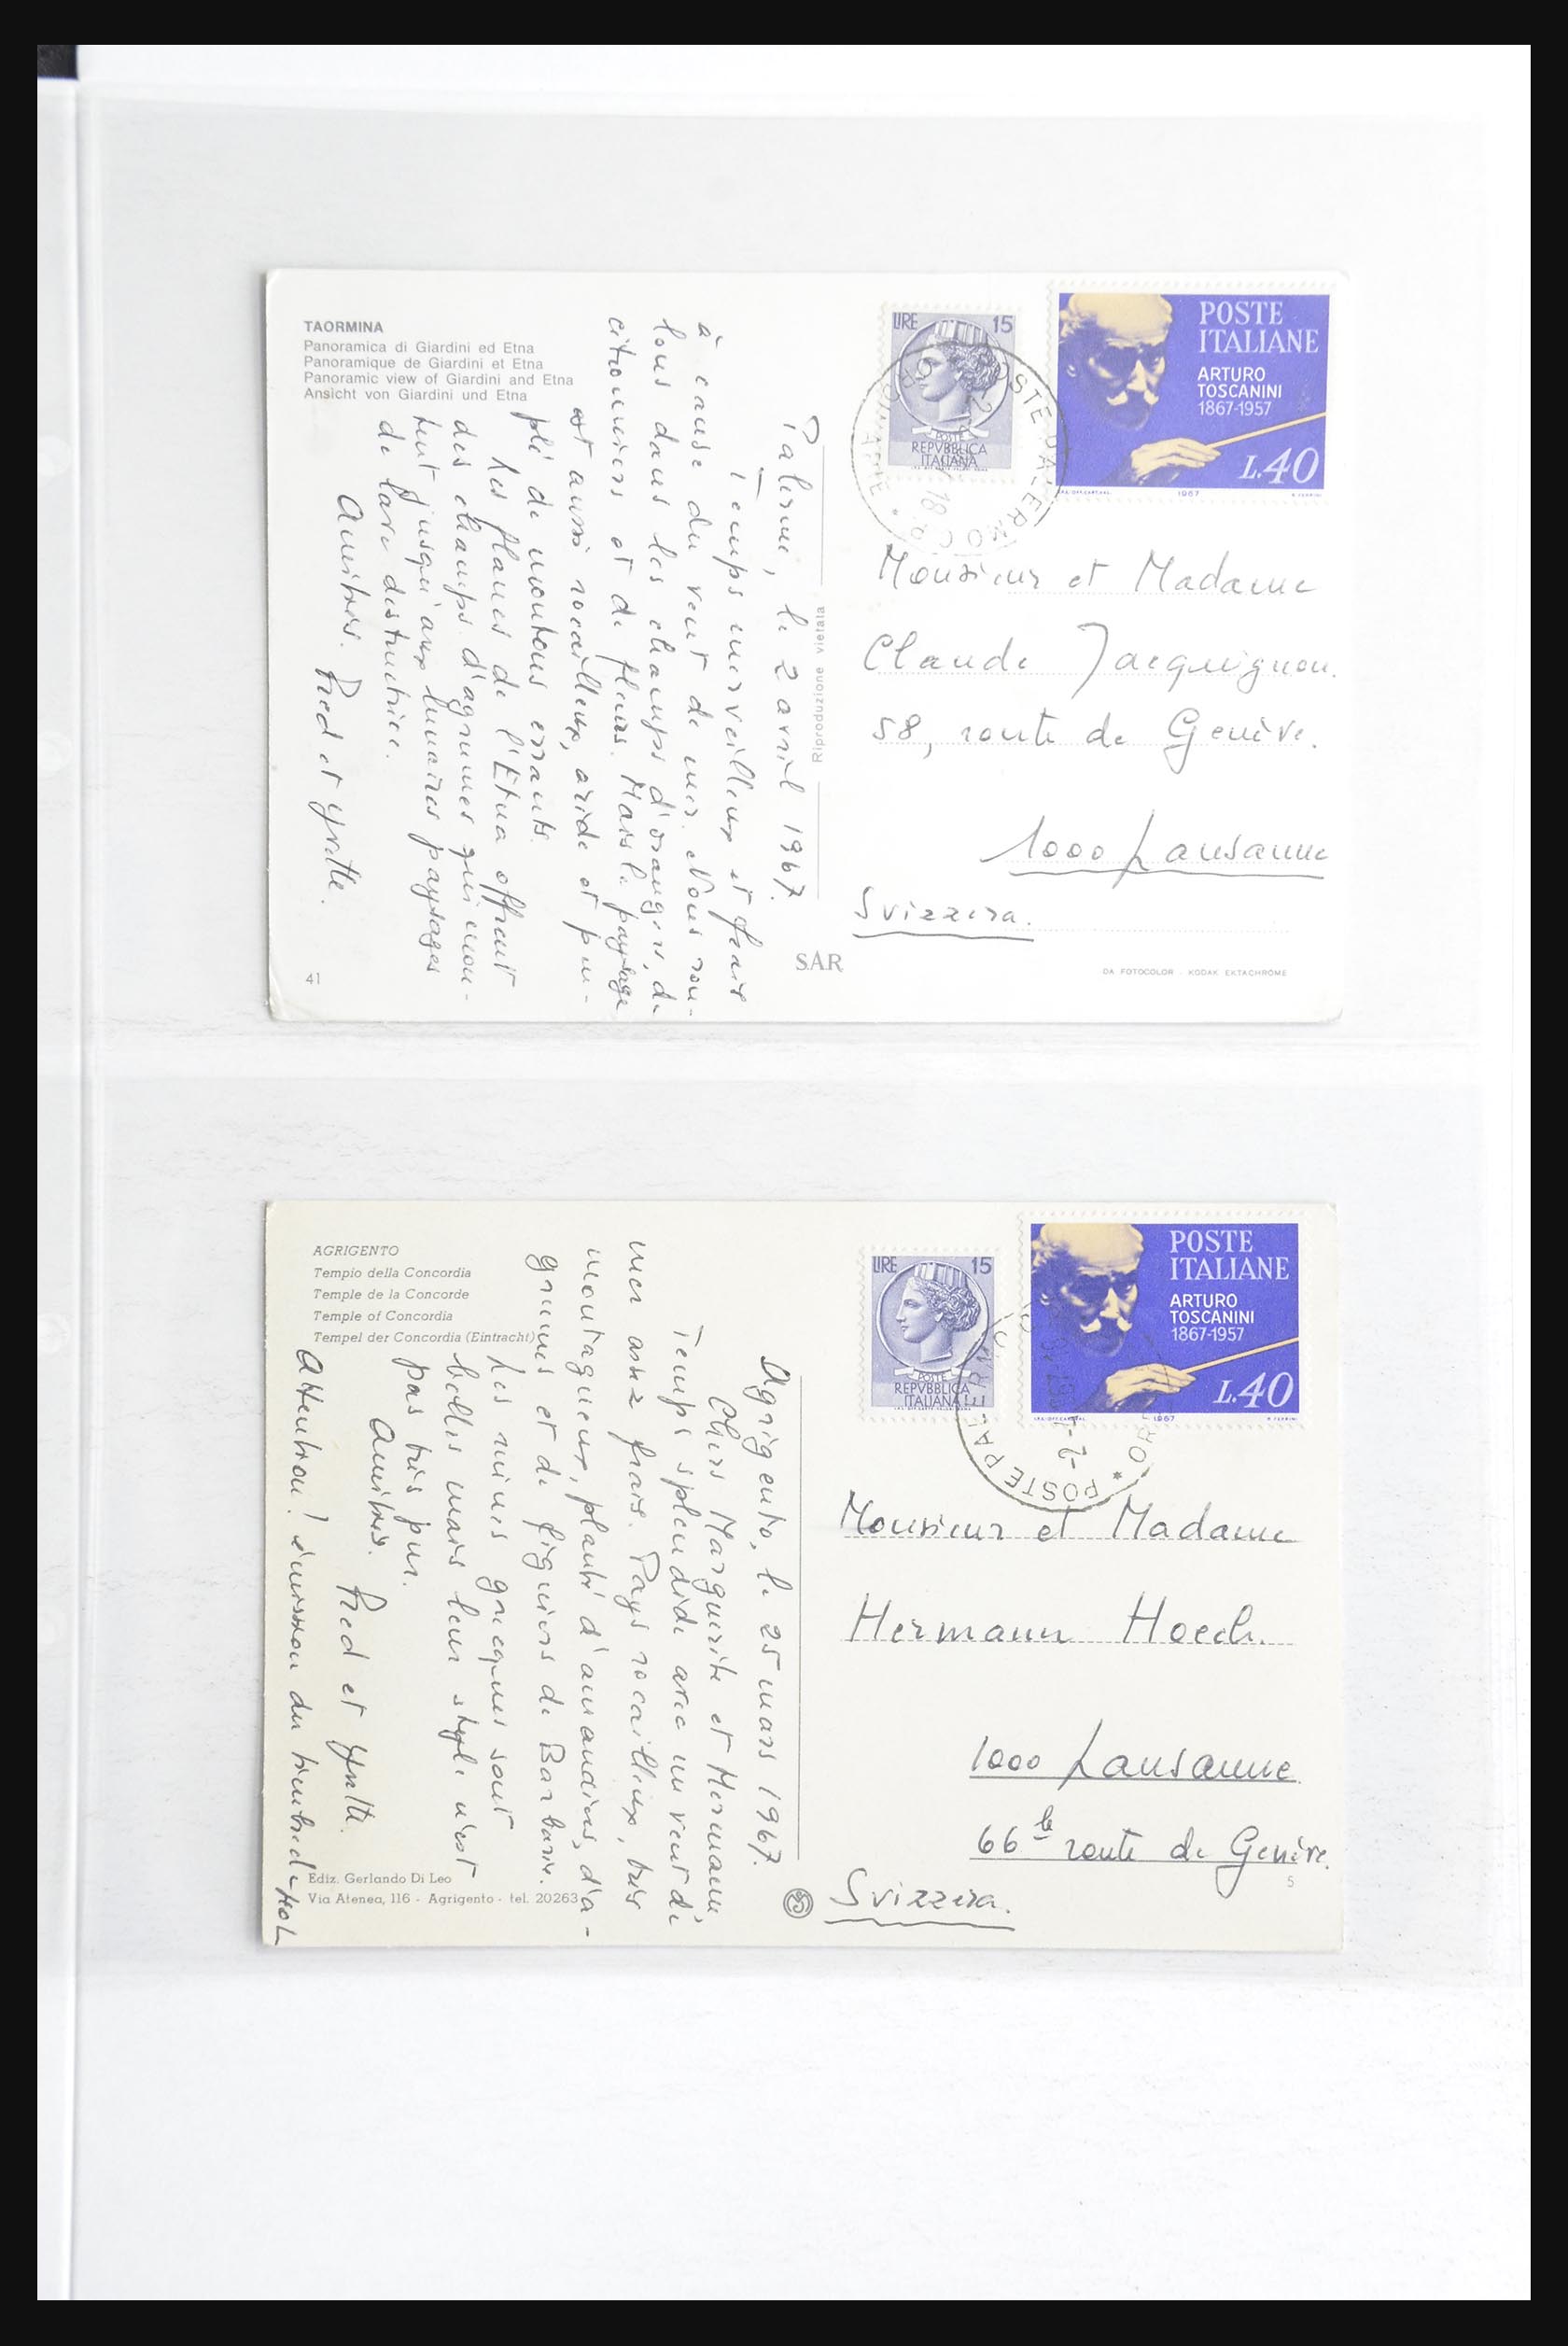 TAORMINA
Panoramica di Giardini ed Etna
Panoramique de Giardini et Etna
Panoramic view of Giardini and Etna
Ansicht von Giardini und Etna
Palerme, le 2 avril 1967.
Temps merveilleux et frais
à cause du vent de mer. Nous rou-
lons dans les champs d'orangers, de
citronniers et de fleurs. Mais le paysage
est aussi rocailleux, aride et peu-
plé de moutons errants.
Les flancs de l'Etna offrent
des champs d'agrumes qui mon-
tent jusqu'aux lunaires paysages
de lave destructrice.
Amitiés. Fred et Yvette.
41
Riproduzione vietata
SAR
LIRE 15
POSTE
REPVBBLICA
ITALIANA
POSTE PALERMO C.P.
POSTE
ITALIANE
ARTURO
TOSCANINI
1867-1957
L.40
1967
Monsieur et Madame
Claude Jacquignon.
58, route de Genève.
1000 Lausanne
Svizzera.
DA FOTOCOLOR - KODAK EKTACHROME
AGRIGENTO
Tempio della Concordia
Temple de la Concorde
Temple of Concordia
Tempel der Concordia (Eintracht)
Agrigento, le 25 mars 1967.
Chers Marguerite et Hermann,
Temps splendide avec un vent de
mer assez frais. Pays rocailleux, très
montagneux, planté d'amandiers, d'a-
grumes et de figuiers de Barbarie.
Les ruines grecques sont
belles mais leur style n'est
pas très pur.
Amitiés. Fred et Yvette.
Attention! émission du timbre de 40 L
Ediz. Gerlando Di Leo
Via Atenea, 116 - Agrigento - tel. 20263
LIRE 15
POSTE
REPVBBLICA
ITALIANA
POSTE PALERMO
POSTE
ITALIANE
ARTURO
TOSCANINI
1867-1957
L.40
1967
Monsieur et Madame
Hermann Hoech.
1000 Lausanne.
66 b route de Genève.
5
Svizzera.